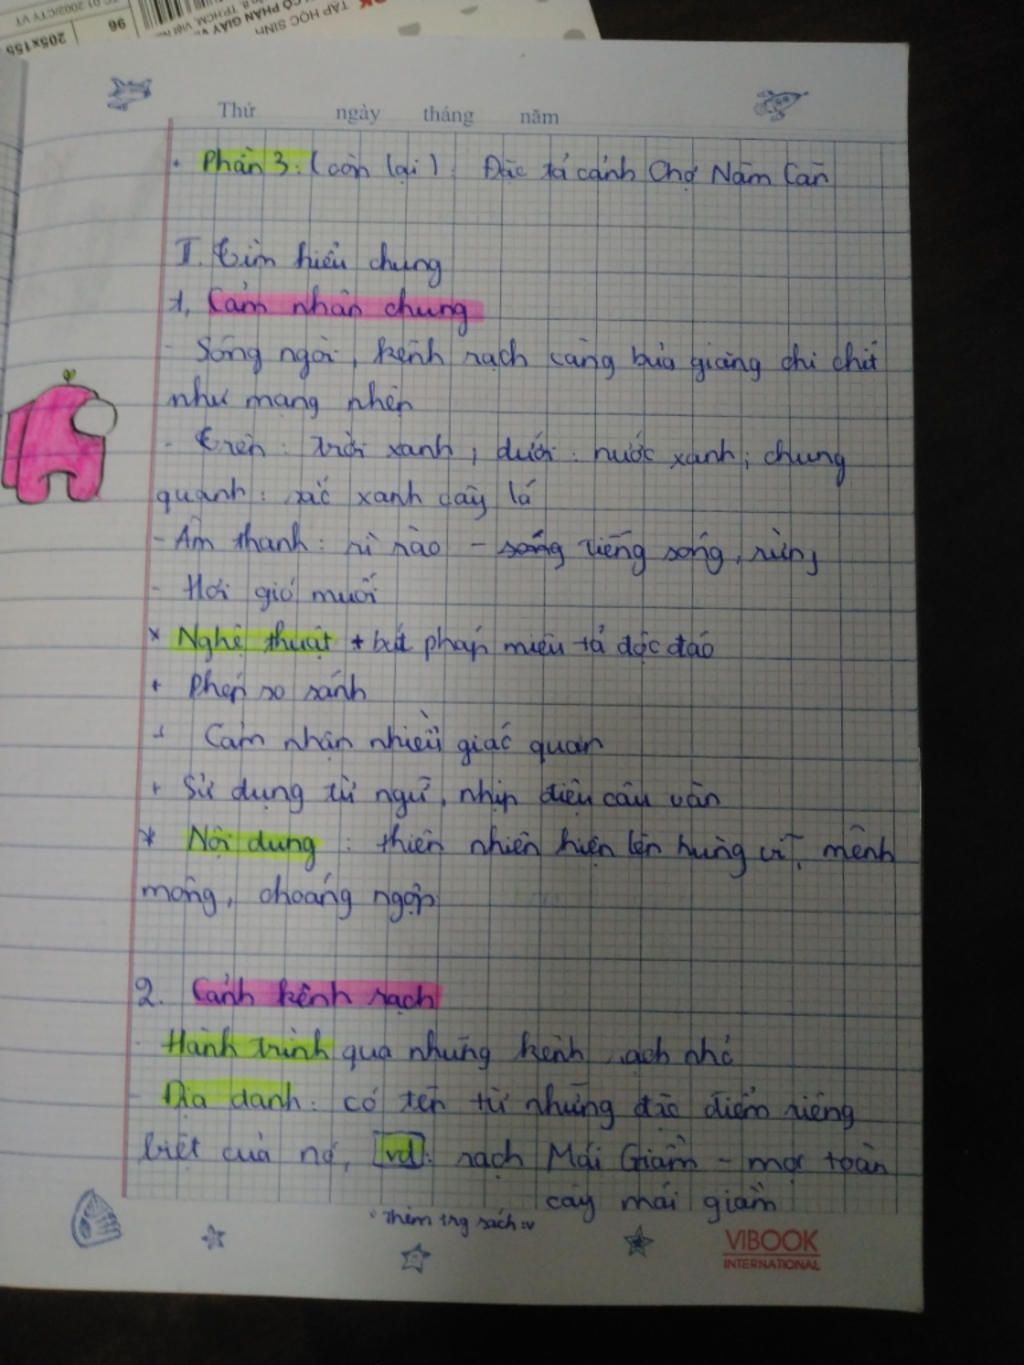 TẬP HỌC SINH
96
205x155
Thứ ngày tháng năm
. Phần 3: (còn lại): Đặc tả cảnh Chợ Năm Căn
I. Tìm hiểu chung
1. Cảm nhận chung
- Sông ngòi, kênh rạch càng bủa giăng chi chít
như mạng nhện
- Trên: trời xanh, dưới: nước xanh; chung
quanh: sắc xanh cây lá
- Âm thanh: rì rào - sóng tiếng sóng, rừng
- Hơi gió muối
* Nghệ thuật + bút pháp miêu tả độc đáo
+ Phép so sánh
+ Cảm nhận nhiều giác quan
+ Sử dụng từ ngữ, nhịp điệu câu văn
* Nội dung: thiên nhiên hiện lên hùng vĩ, mênh
mông, choáng ngợp
2. Cảnh kênh rạch
- Hành trình qua những kênh rạch nhỏ
- Địa danh: có tên từ những đặc điểm riêng
biệt của nó, vd: rạch Mái Giầm - mọc toàn
cây mái giầm
* thêm trg sách :v
VIBOOK
INTERNATIONAL